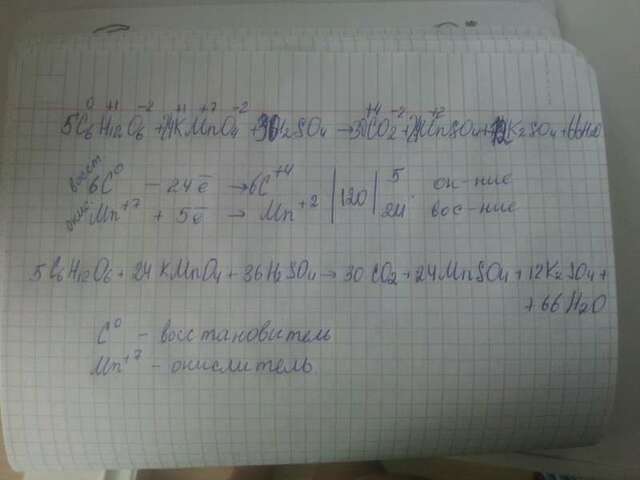 0 +1 -2 +1 +7 -2 +4 -2 +2
5C₆H₁₂O₆ + 24KMnO₄ + 36H₂SO₄ → 30CO₂ + 24MnSO₄ + 12K₂SO₄ + 66H₂O
восст 6C⁰ - 24e̅ → 6C⁺⁴ | 120 | 5 ок-ние
окис. Mn⁺⁷ + 5e̅ → Mn⁺² | 24 вос-ние
5C₆H₁₂O₆ + 24KMnO₄ + 36H₂SO₄ → 30CO₂ + 24MnSO₄ + 12K₂SO₄ +
+ 66H₂O
C⁰ - восстановитель
Mn⁺⁷ - окислитель.